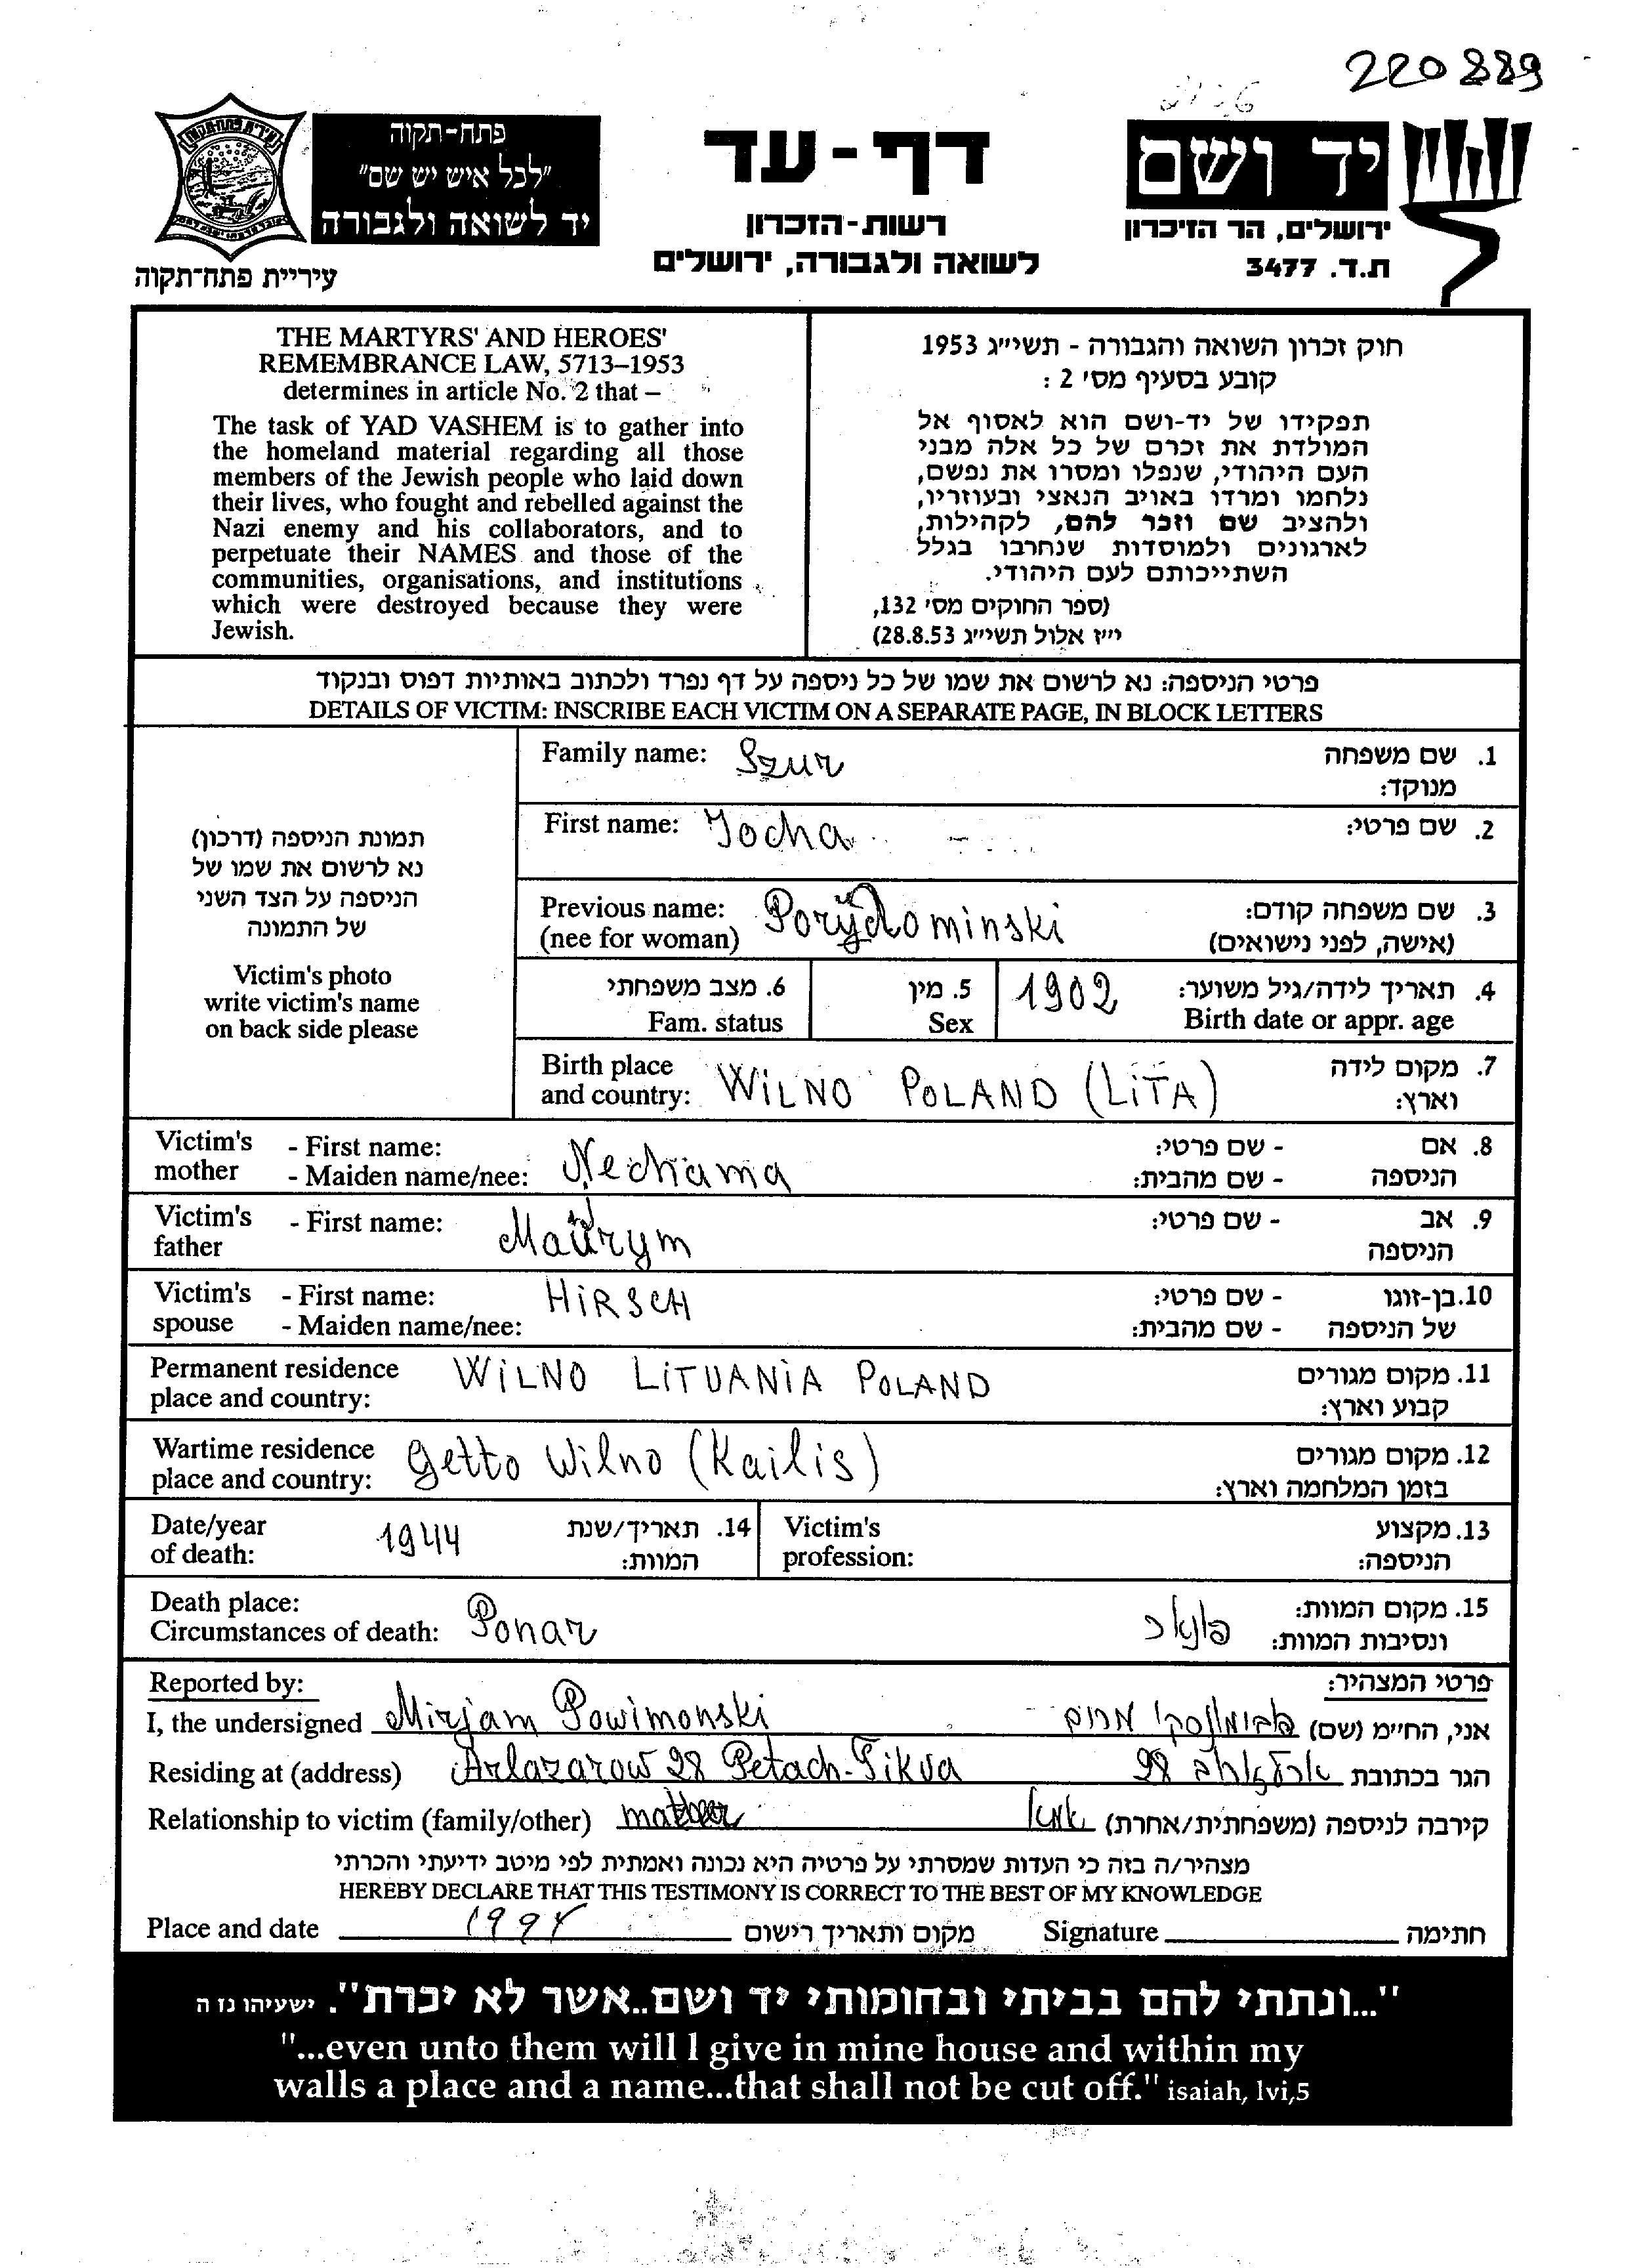 220889
פתח-תקוה
"לכל איש יש שם"
יד לשואה ולגבורה
עיריית פתח-תקוה
דף-עד
רשות-הזכרון
לשואה ולגבורה, ירושלים
יד ושם
ירושלים, הר הזיכרון
ת.ד. 3477
THE MARTYRS' AND HEROES'
REMEMBRANCE LAW, 5713–1953
determines in article No. 2 that –
The task of YAD VASHEM is to gather into
the homeland material regarding all those
members of the Jewish people who laid down
their lives, who fought and rebelled against the
Nazi enemy and his collaborators, and to
perpetuate their NAMES and those of the
communities, organisations, and institutions
which were destroyed because they were
Jewish.
חוק זכרון השואה והגבורה - תשי״ג 1953
קובע בסעיף מס׳ 2 :
תפקידו של יד-ושם הוא לאסוף אל
המולדת את זכרם של כל אלה מבני
העם היהודי, שנפלו ומסרו את נפשם,
נלחמו ומרדו באויב הנאצי ובעוזריו,
ולהציב שם וזכר להם, לקהילות,
לארגונים ולמוסדות שנחרבו בגלל
השתייכותם לעם היהודי.
(ספר החוקים מס׳ 132,
י״ז אלול תשי״ג 28.8.53)
פרטי הניספה: נא לרשום את שמו של כל ניספה על דף נפרד ולכתוב באותיות דפוס ובנקוד
DETAILS OF VICTIM: INSCRIBE EACH VICTIM ON A SEPARATE PAGE, IN BLOCK LETTERS
תמונת הניספה (דרכון)
נא לרשום את שמו של
הניספה על הצד השני
של התמונה
Victim's photo
write victim's name
on back side please
Family name: Szur 1. שם משפחה
מנוקד:
First name: Jocha 2. שם פרטי:
Previous name: Porydominski 3. שם משפחה קודם:
(nee for woman) (אישה, לפני נישואים)
6. מצב משפחתי 5. מין 1902 4. תאריך לידה/גיל משוער:
Fam. status Sex Birth date or appr. age
Birth place 7. מקום לידה
and country: WiLNO POLAND (LiTA) וארץ:
Victim's - First name: - שם פרטי: 8. אם
mother - Maiden name/nee: Nechama - שם מהבית: הניספה
Victim's - First name: - שם פרטי: 9. אב
father הניספה
Victim's - First name: HiRSCH - שם פרטי: 10. בן-זוגו
spouse - Maiden name/nee: - שם מהבית: של הניספה
Permanent residence WiLNO LiTUANiA POLAND 11. מקום מגורים
place and country: קבוע וארץ:
Wartime residence Getto Wilno (Kailis) 12. מקום מגורים
place and country: בזמן המלחמה וארץ:
Date/year 1944 14. תאריך/שנת Victim's 13. מקצוע
of death: המוות: profession: הניספה:
Death place: 15. מקום המוות:
Circumstances of death: Ponar פונאר ונסיבות המוות:
Reported by: פרטי המצהיר:
I, the undersigned Mirjam Powimonski אני, החי״מ (שם) פבימונסקי מרים
Residing at (address) Arlazarow 28 Petach-Tikva הגר בכתובת ארלזורוב 28
Relationship to victim (family/other) קירבה לניספה (משפחתית/אחרת)
מצהיר/ה בזה כי העדות שמסרתי על פרטיה היא נכונה ואמתית לפי מיטב ידיעתי והכרתי
HEREBY DECLARE THAT THIS TESTIMONY IS CORRECT TO THE BEST OF MY KNOWLEDGE
Place and date 1994 מקום ותאריך רישום Signature חתימה
"...ונתתי להם בביתי ובחומותי יד ושם..אשר לא יכרת". ישעיהו נז ה
"...even unto them will I give in mine house and within my
walls a place and a name...that shall not be cut off." isaiah, lvi,5